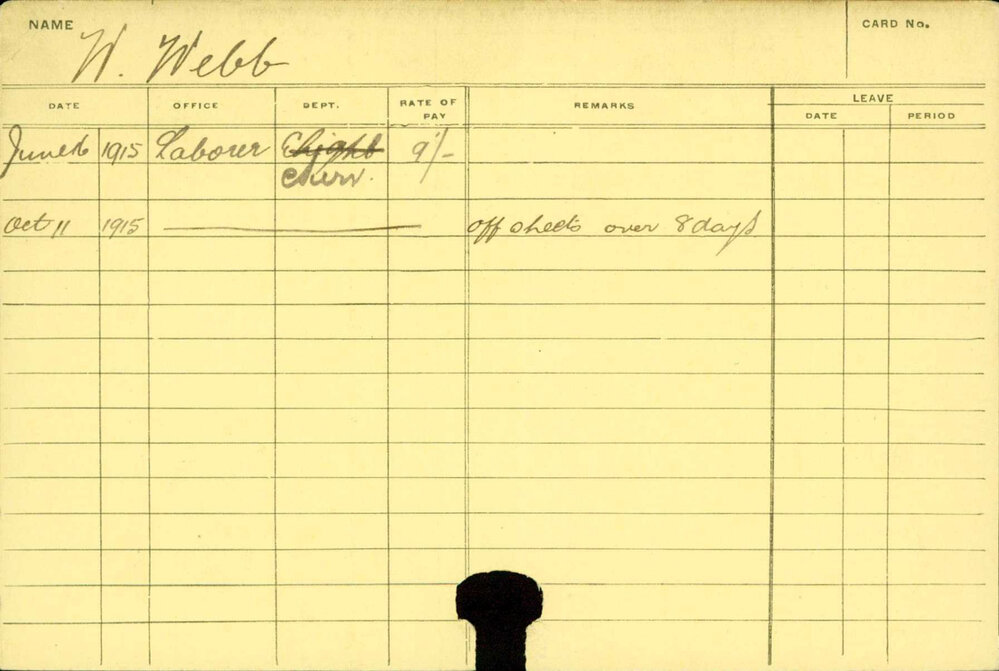 NAME W. Webb CARD No.
DATE OFFICE DEPT. RATE OF PAY REMARKS LEAVE
DATE PERIOD
June 16 1915 Laborer 9/-
Oct 11 1915 off sheets over 8 days